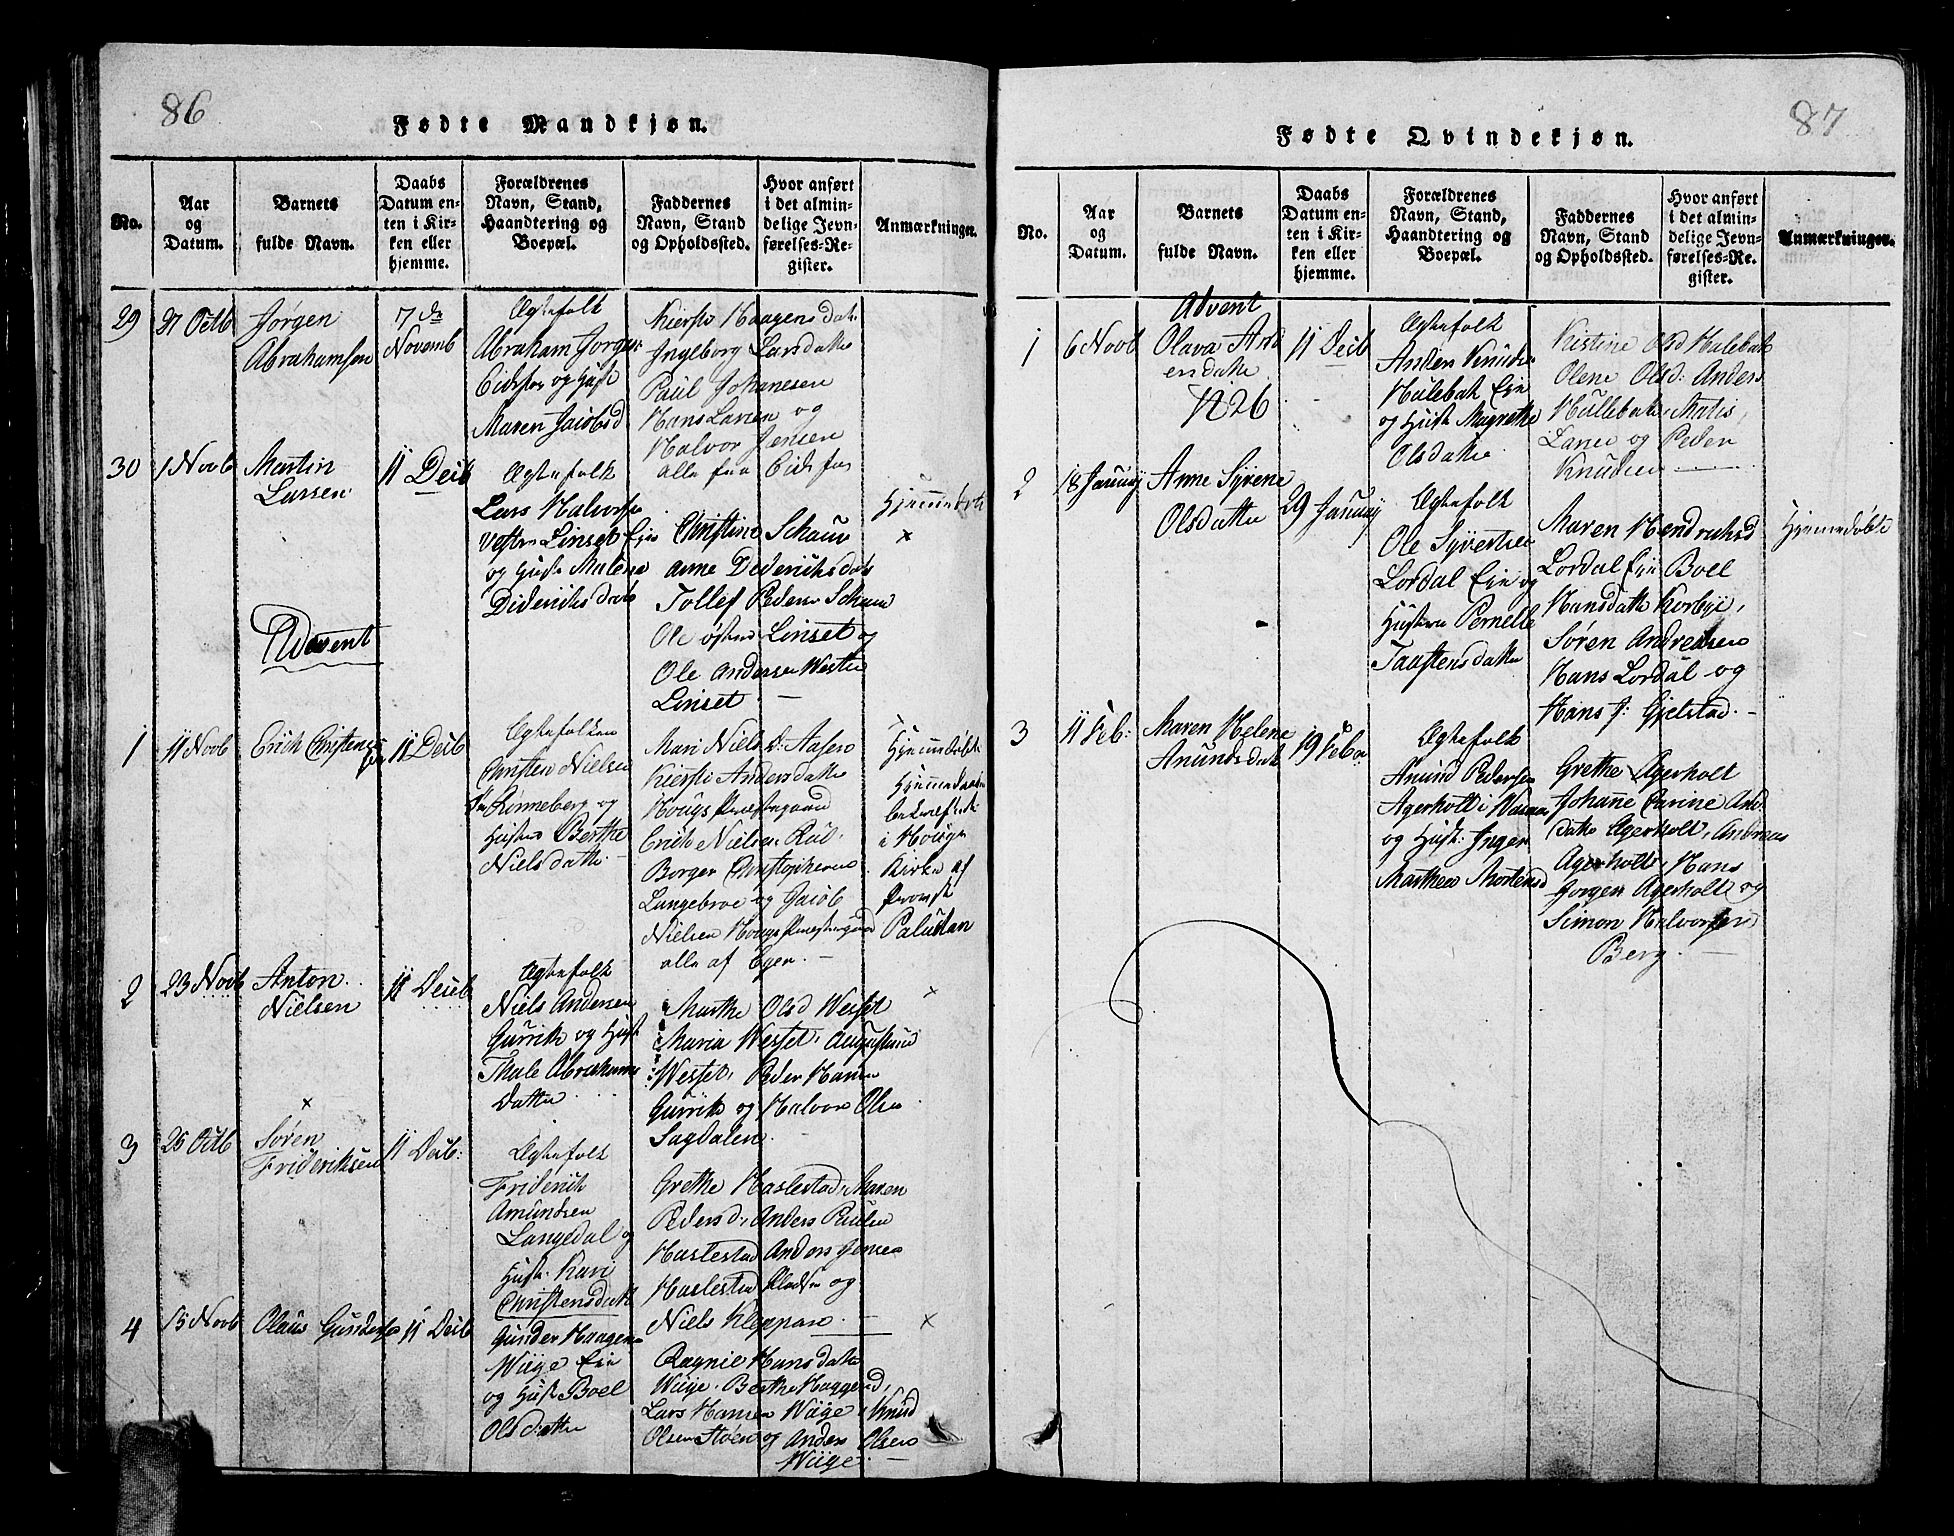 86
Fødte Mandkjøn.
No.
Aar
og
Datum.
Barnets
fulde Navn.
Daabs
Datum en-
ten i Kir-
ken eller
hjemme.
Forældrenes
Navn, Stand,
Haandtering og
Boepæl.
Faddernes
Navn, Stand
og Opholdssted.
Hvor anført
i det almin-
delige Jevn-
førelses-Re-
gister.
Anmærkninger.
29
27 Octb
Jørgen
Abrahamsen
7de
Novemb
Ægtefolk
Abraham Jørgens
Eidsfos og Hust
Maren Jacobsd
Kiersti Haagensdat
Ingeborg Larsdatte
Paul Johanesen
Hans Larsen og
Halvor Jensen
alle fra Eidsfos
30
1 Novb
Martin
Larsen
11 Decb
Ægtefolk
Lars Halvors
Vestre Linset Eie
og Hust Malene
Dideriks dat
Christine Schauv
Anne Dideriksdat
Tollef Peders Schauv
Ole østre Linset og
Ole Andersen Westre
Linset
Hjemmedøbt
x
Advent
1
11 Novb
Erich Christens
sen
11 Decb
Ægtefolkene
Christen Nielsen
Rønneberg og
Hustru Berthe
Nielsdatte
Mari Niels D: Aasero
Kiersti Andersdatte
Hougs Præstegaard
Erich Nielsen
Borger Christophersen
Langebroe og Jacob
Nielsen Hougs Præstegaard
alle af Eger
Hjemmedøbt
Hjemmedaaben
bekræftet
i Hougs
Kirke af
Provst
Paludan
2
23 Novb
Anton
Nielsen
11 Decb
Ægtefolk
Niels Andersen
Gurrik og Hust
Thale Abrahams
Datter
Marthe Olsd Wesset
Maria Wesset, Augustinus
Wesset, Peder Hansen
Gurrik og Halvor Olsen
Sagdalen
x
3
25 Octb
x
Søren
Frideriksen
11 Decb:
Ægtefolk
Friderich
Amundsen
Langedal og
Hust. Kari
Christensdatt
Grethe Haslestad, Maren
Pedersd, Anders Paulsen
Haslestad Anders Jensen
Haslestad Kladsen og
Niels Kleppan
4
15 Novb
Olaus Gunders
11 Decb
Gunder Haagens
Wiige Eie
og Hust Boel
Olsdatter
Ragnil Hansdatte
Wiige, Berthe Haggensd,
Lars Hansen Wiige, Knud
Olsen Støen og Anders Olsen
Wiige
x
87
Fødte Qvindekjøn.
No.
Aar
og
Datum.
Barnets
fulde Navn.
Daabs
Datum en-
ten i Kir-
ken eller
hjemme.
Forældrenes
Navn, Stand,
Haandtering og
Boepæl.
Faddernes
Navn, Stand
og Opholdssted.
Hvor anført
i det almin-
delige Jevn-
førelses-Re-
gister.
Anmærkninger.
Advent
1
6 Novb
Olava And
ersdatte
N26
11 Decb
Ægtefolk
Anders Knudsen
Hulebak Eie
og Hust Magrethe
Olsdatte
Kristine Olsd Hulebak
Olene Olsd: Anders
Hullebak, Mathis
Larsen og Peder
Knudsen
2
18 Januay
Anne Syrene
Olsdatter
29 Januay
Ægtefolk
Ole Syvertsen
Lordal Eie og
Hustrue Pernelle
Taastensdatte
Maren Hendrichsd
Lordal Eie Boel
Hansdatte Korbye,
Søren Andreasen
Hans Lordal og
Hans J: Gjelstad
Hjemmedøbt
3
11 Feb:
Maren Helene
Anundsdat
19 Feb
Ægtefolk
Anund Pedersen
Agerholt i
og Hust: Inger
Marthea Mortensd
Grethe Agerholt
Johanne Carine And
datte Agerholt, Andreas
Agerholt, Hans
Jorgen Agerholt og
Simon Halvorsen
Berg